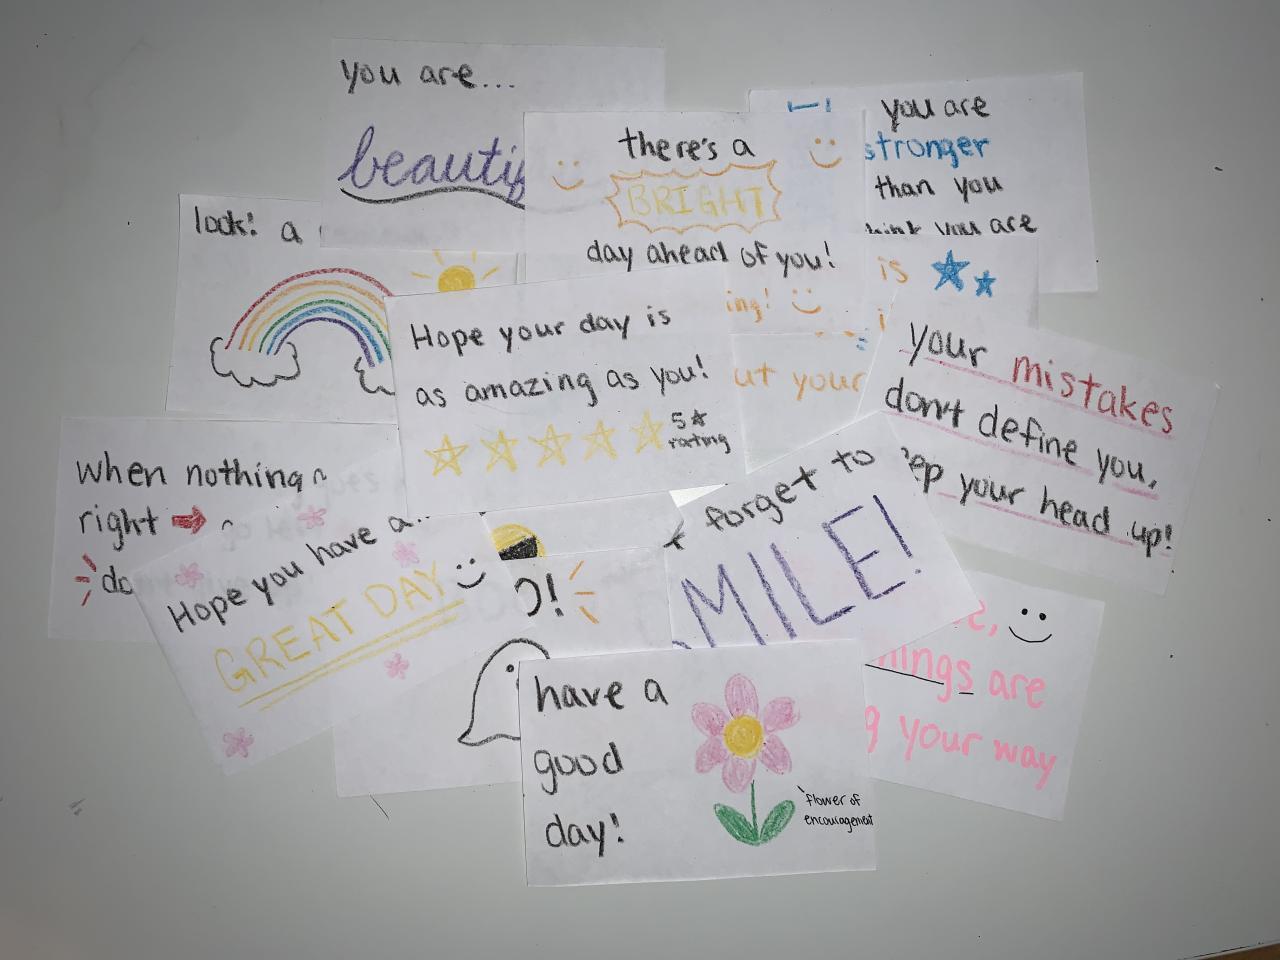 you are...
beautif
there's a
BRIGHT
day ahead of you!
ing!
you are
stronger
than you
think you are
is
look! a
Hope your day is
as amazing as you!
5☆
rating
ut your
your mistakes
don't define you,
ep your head up!
when nothing
right →
do
Hope you have a..
GREAT DAY
O!
forget to
SMILE!
have a
good
day!
'flower of
encouragement
e,
things are
g your way